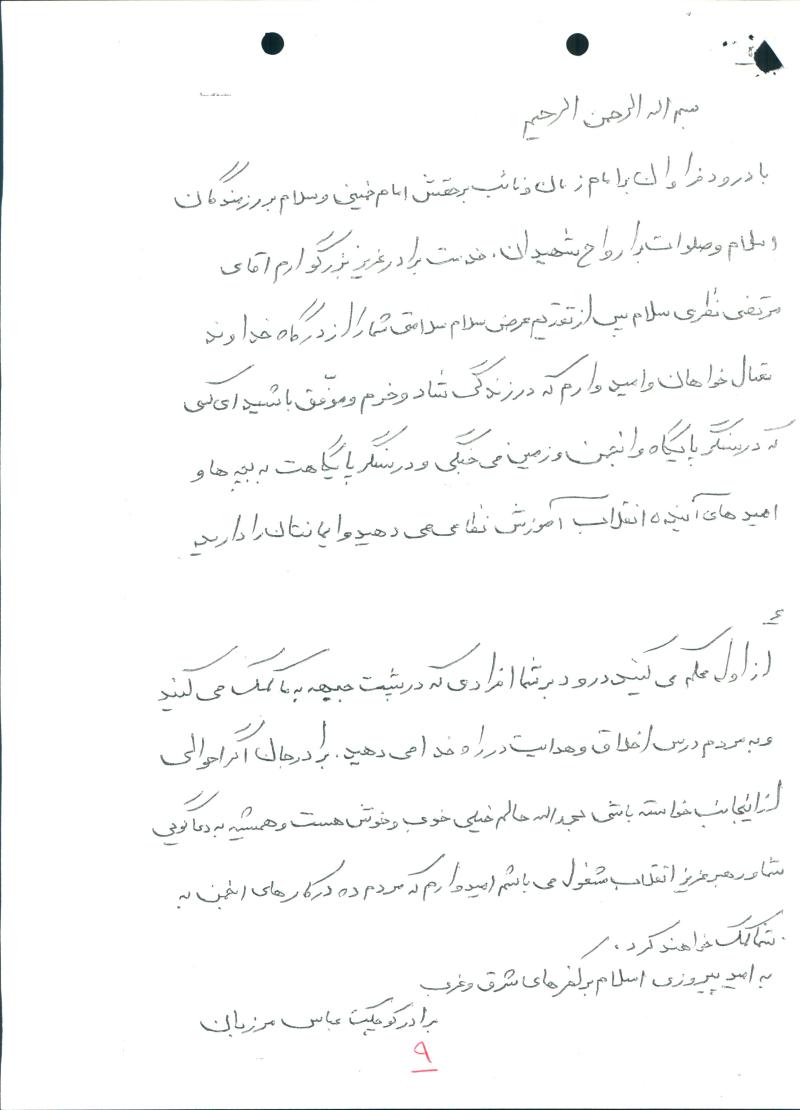 بسم اله الرحمن الرحیم
با درود فراوان برامام زمان و نائب برحقش امام خمینی و سلام بر رزمندگان
اسلام و صلوات برارواح شهیدان. خدمت برادر عزیز بزرگوارم آقای
مرتضی نظری سلام پس از تقدیم عرض سلام سلامتی شما را از درگاه خداوند
تعال خواهان وامید وارم که در زندگی شاد و خرم و موفّق باشید ای کسی
که درسنگر پایگاه و انجمن و زمین می جنگی و درسنگر پایگاهت به بچه ها و
امید های آینده انقلاب آموزش نظامی می دهید و ایمانتان را دارید
۶
از اول محکم می کنید درود بر شما افرادی که در پشت جبهه به ما کمک می کنید
وبه مردم درس اخلاق و هدایت در راه خدا می دهید. برادرجان اگر احوالی
از اینجانب خواسته باشی بحمداله حالم خیلی خوب و خوش هست و همیشه به دعاگویی
شما و رهبر عزیز انقلاب مشغول می باشم امیدوارم که مردم ده در کارهای انجمن به
شما کمک خواهند کرد.
به امید پیروزی اسلام بر کفرهای شرق و غرب
برادر کوچکت عباس مرزبان
۹